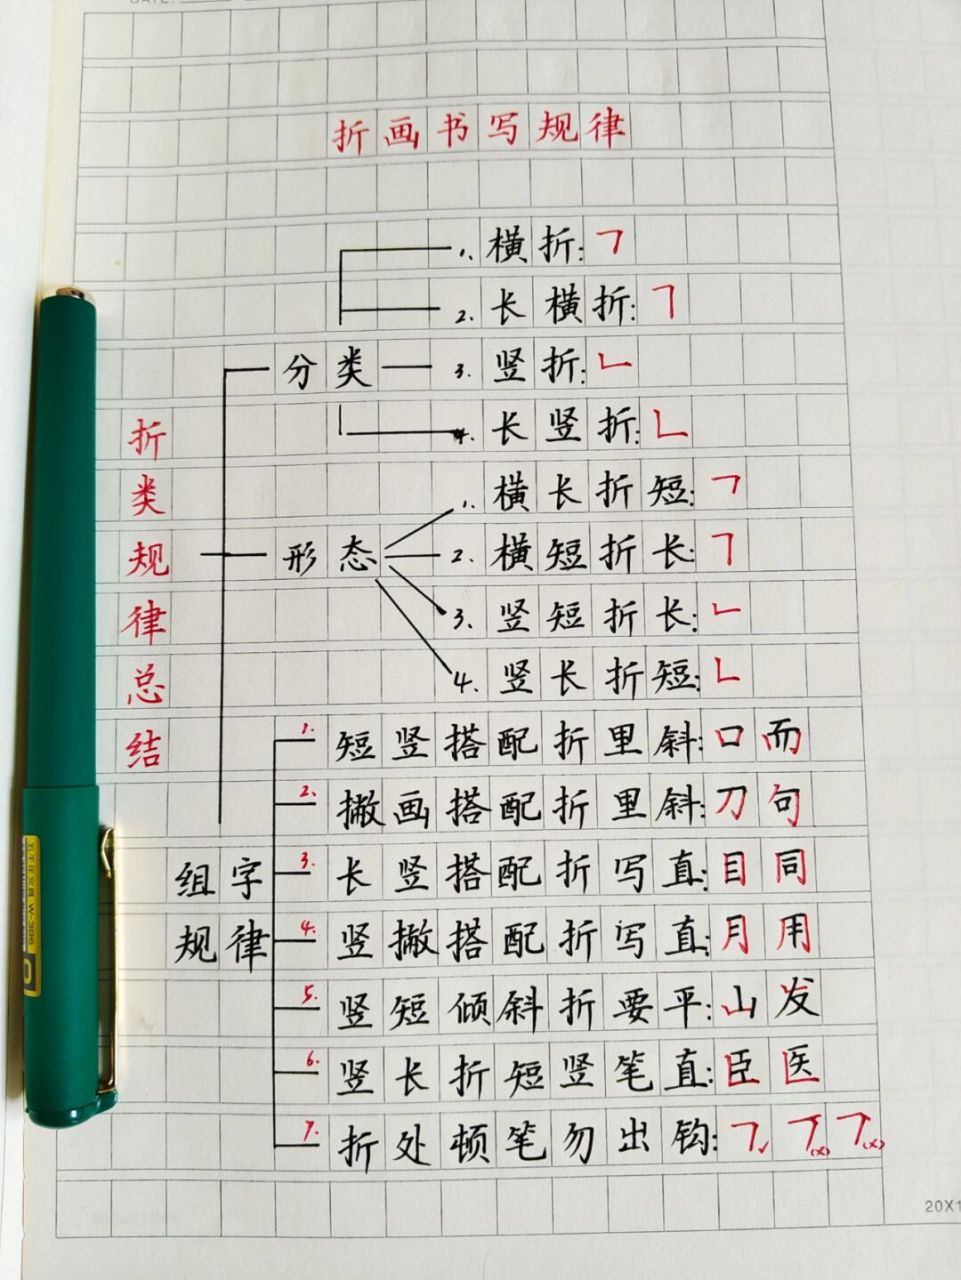 DATE:
折画书写规律
1. 横折: ㇕
2. 长横折: ㇕
分类 3. 竖折: ㇗
4. 长竖折: ㇗
折类规律总结
1. 横长折短: ㇕
形态 2. 横短折长: ㇕
3. 竖短折长: ㇗
4. 竖长折短: ㇗
1. 短竖搭配折里斜: 口 而
2. 撇画搭配折里斜: 刀 句
组字规律
3. 长竖搭配折写直: 目 同
4. 竖撇搭配折写直: 月 用
5. 竖短倾斜折要平: 山 发
6. 竖长折短竖笔直: 臣 医
7. 折处顿笔勿出钩: ㇕✓ ㇕(×) ㇕(×)
W-306